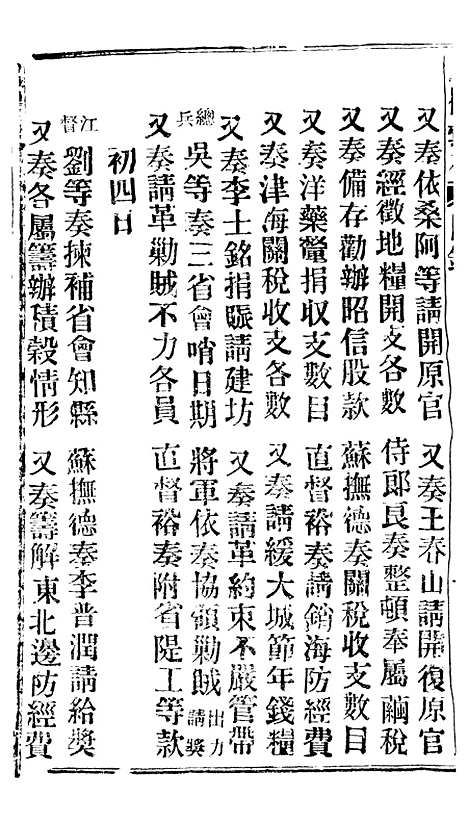 又奏依桑阿等請開原官　又奏王春山請開復原官
又奏經徵地糧開支各數　侍郎良奏整頓奉屬繭稅
又奏備存勸辦昭信股款　蘇撫德奏關稅收支數目
又奏洋藥釐捐收支數目　直督裕奏請銷海防經費
又奏津海關稅收支各數　又奏請緩大城節年錢糧
又奏李士銘捐賑請建坊　又奏請革約束不嚴管帶
總兵吳等奏三省會哨日期　將軍依奏協領勦賊出力請獎
又奏請革勦賊不力各員　直督裕奏附省隄工等款
初四日
江督劉等奏揀補省會知縣　蘇撫德奏李普潤請給獎
又奏各屬籌辦積穀情形　又奏籌解東北邊防經費